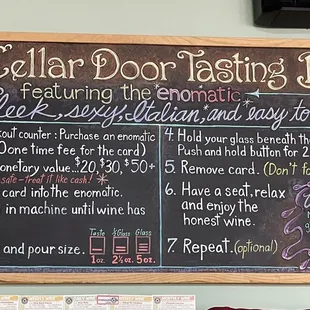 Cellar Door Tasting
featuring the enomatic
sleek, sexy, Italian, and easy to
out counter: Purchase an enomatic
One time fee for the card)
onetary value... $20, $30, $50+
safe-treat it like cash! *
card into the enomatic.
in machine until wine has
and pour size.
Taste 1/2 Glass Glass
1 oz. 2 1/2 oz. 5 oz.
4. Hold your glass beneath th
Push and hold button for 2
5. Remove card. (Don't f
6. Have a seat, relax
and enjoy the
honest wine.
7. Repeat. (optional)